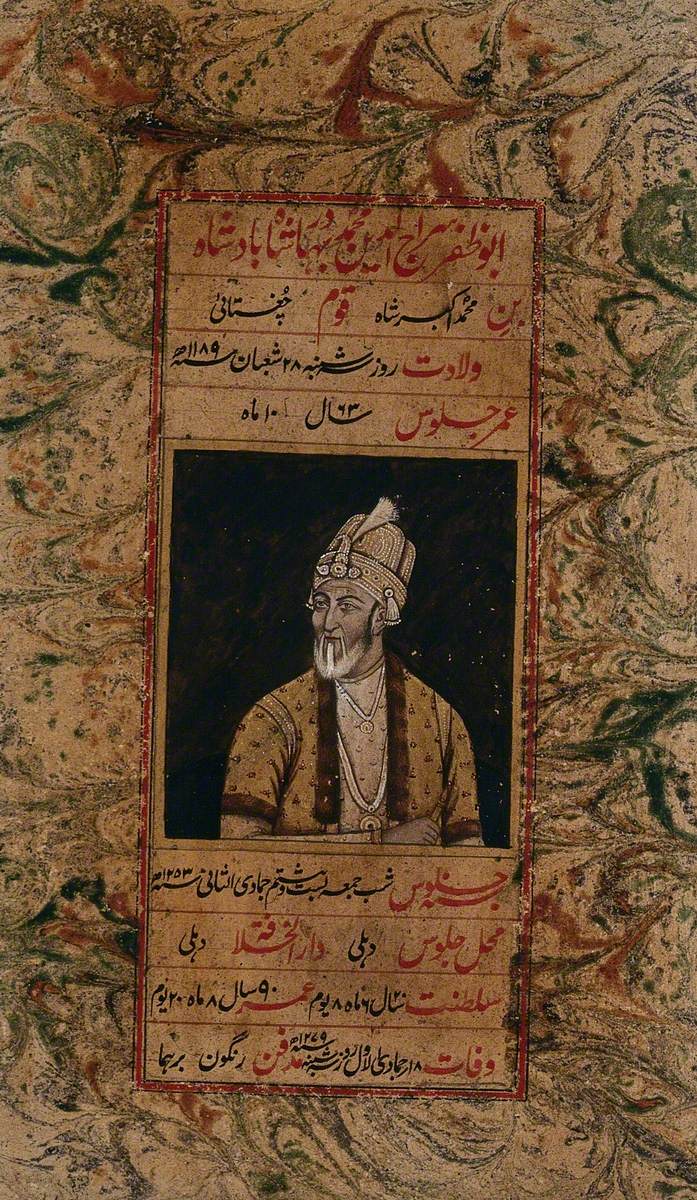 ابو ظفر سراج الدین محمد بہادر شاہ بادشاہ
بن محمد اکبر شاہ قوم چُغتائی
ولادت روز سہ شنبہ ۲۸ شعبان سنہ ۱۱۸۹ھ
عمر جلوس ۶۳ سال ۱۰ ماہ
جلوس شب جمعہ بست و ہشتم جمادی الثانی سنہ ۱۲۵۳ھ
محل جلوس دہلی دار الخلافۃ دہلی
سلطنت ۲۰ سال ۶ ماہ ۸ یوم عمر ۹۰ سال ۸ ماہ ۲۰ یوم
وفات ۱۸ جمادی الاول روز سہ شنبہ سنہ ۱۲۷۹ھ مدفن رنگون برہما